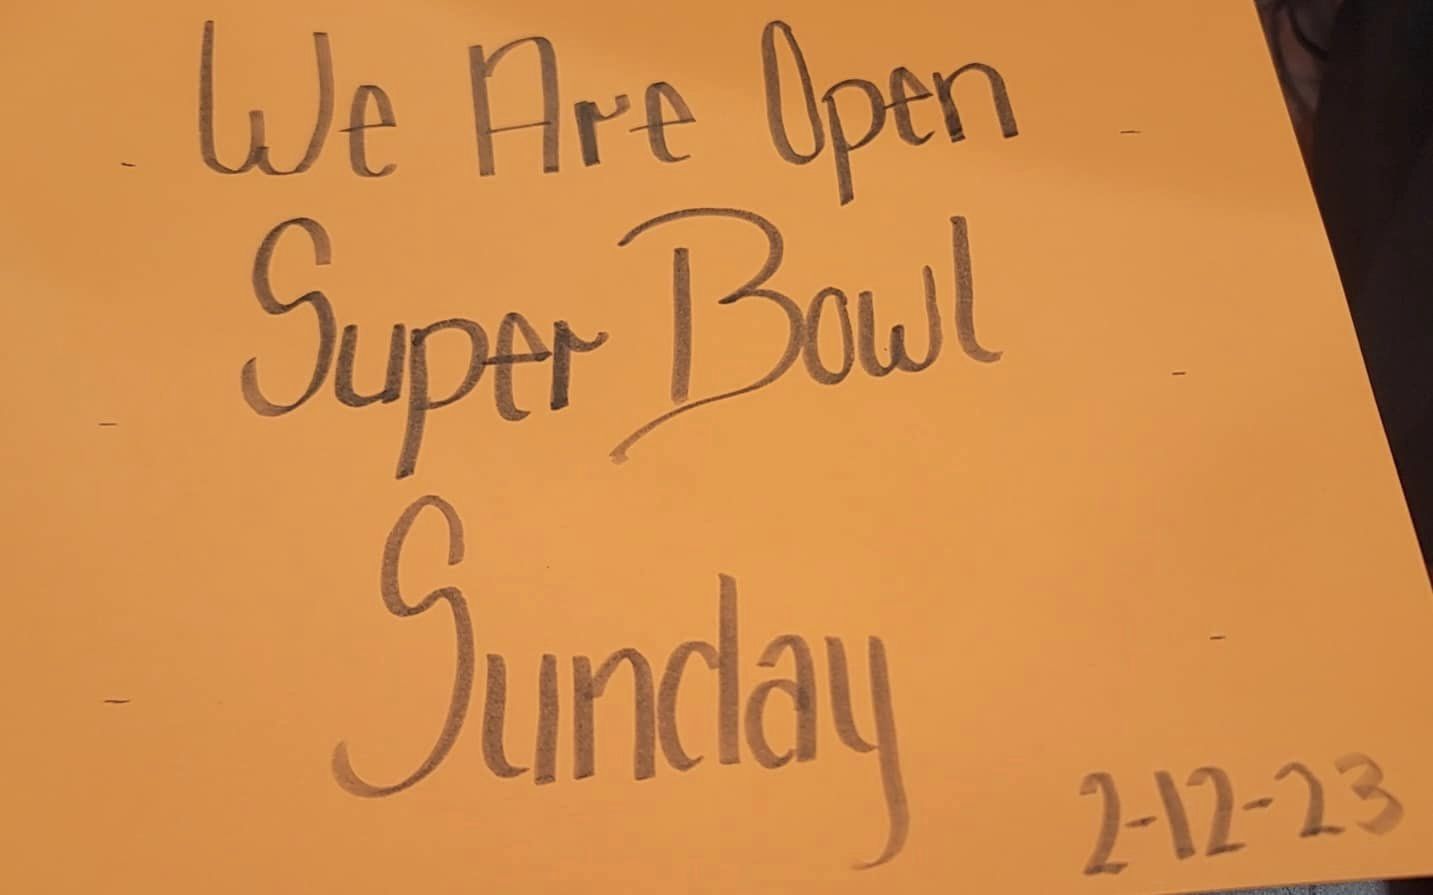 We Are Open
Super Bowl
Sunday
2-12-23